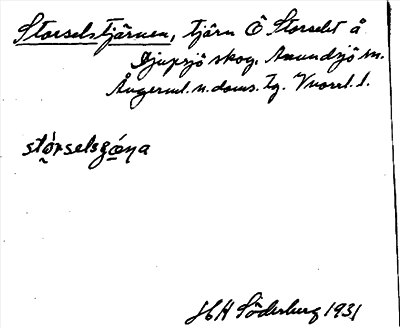 Storselstjärnen, tjärn Ö Storselet å
Djupsjö skog, Anundsjö sn.
Ångerml. n. doms. tg. Vnorrl. l.
stórselsgóṇa
HH Söderberg 1931